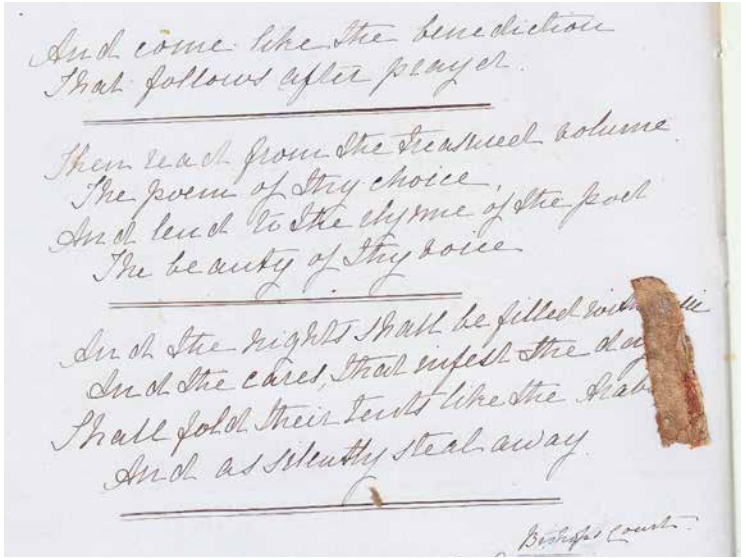 And come like the benediction
That follows after prayer.
Then read from the treasured volume
The poem of thy choice,
And lend to the rhyme of the poet
The beauty of thy voice
And the nights shall be filled with
And the cares, that infest the day
Shall fold their tents like the Arabs
And as silently steal away.
Bishops Court.